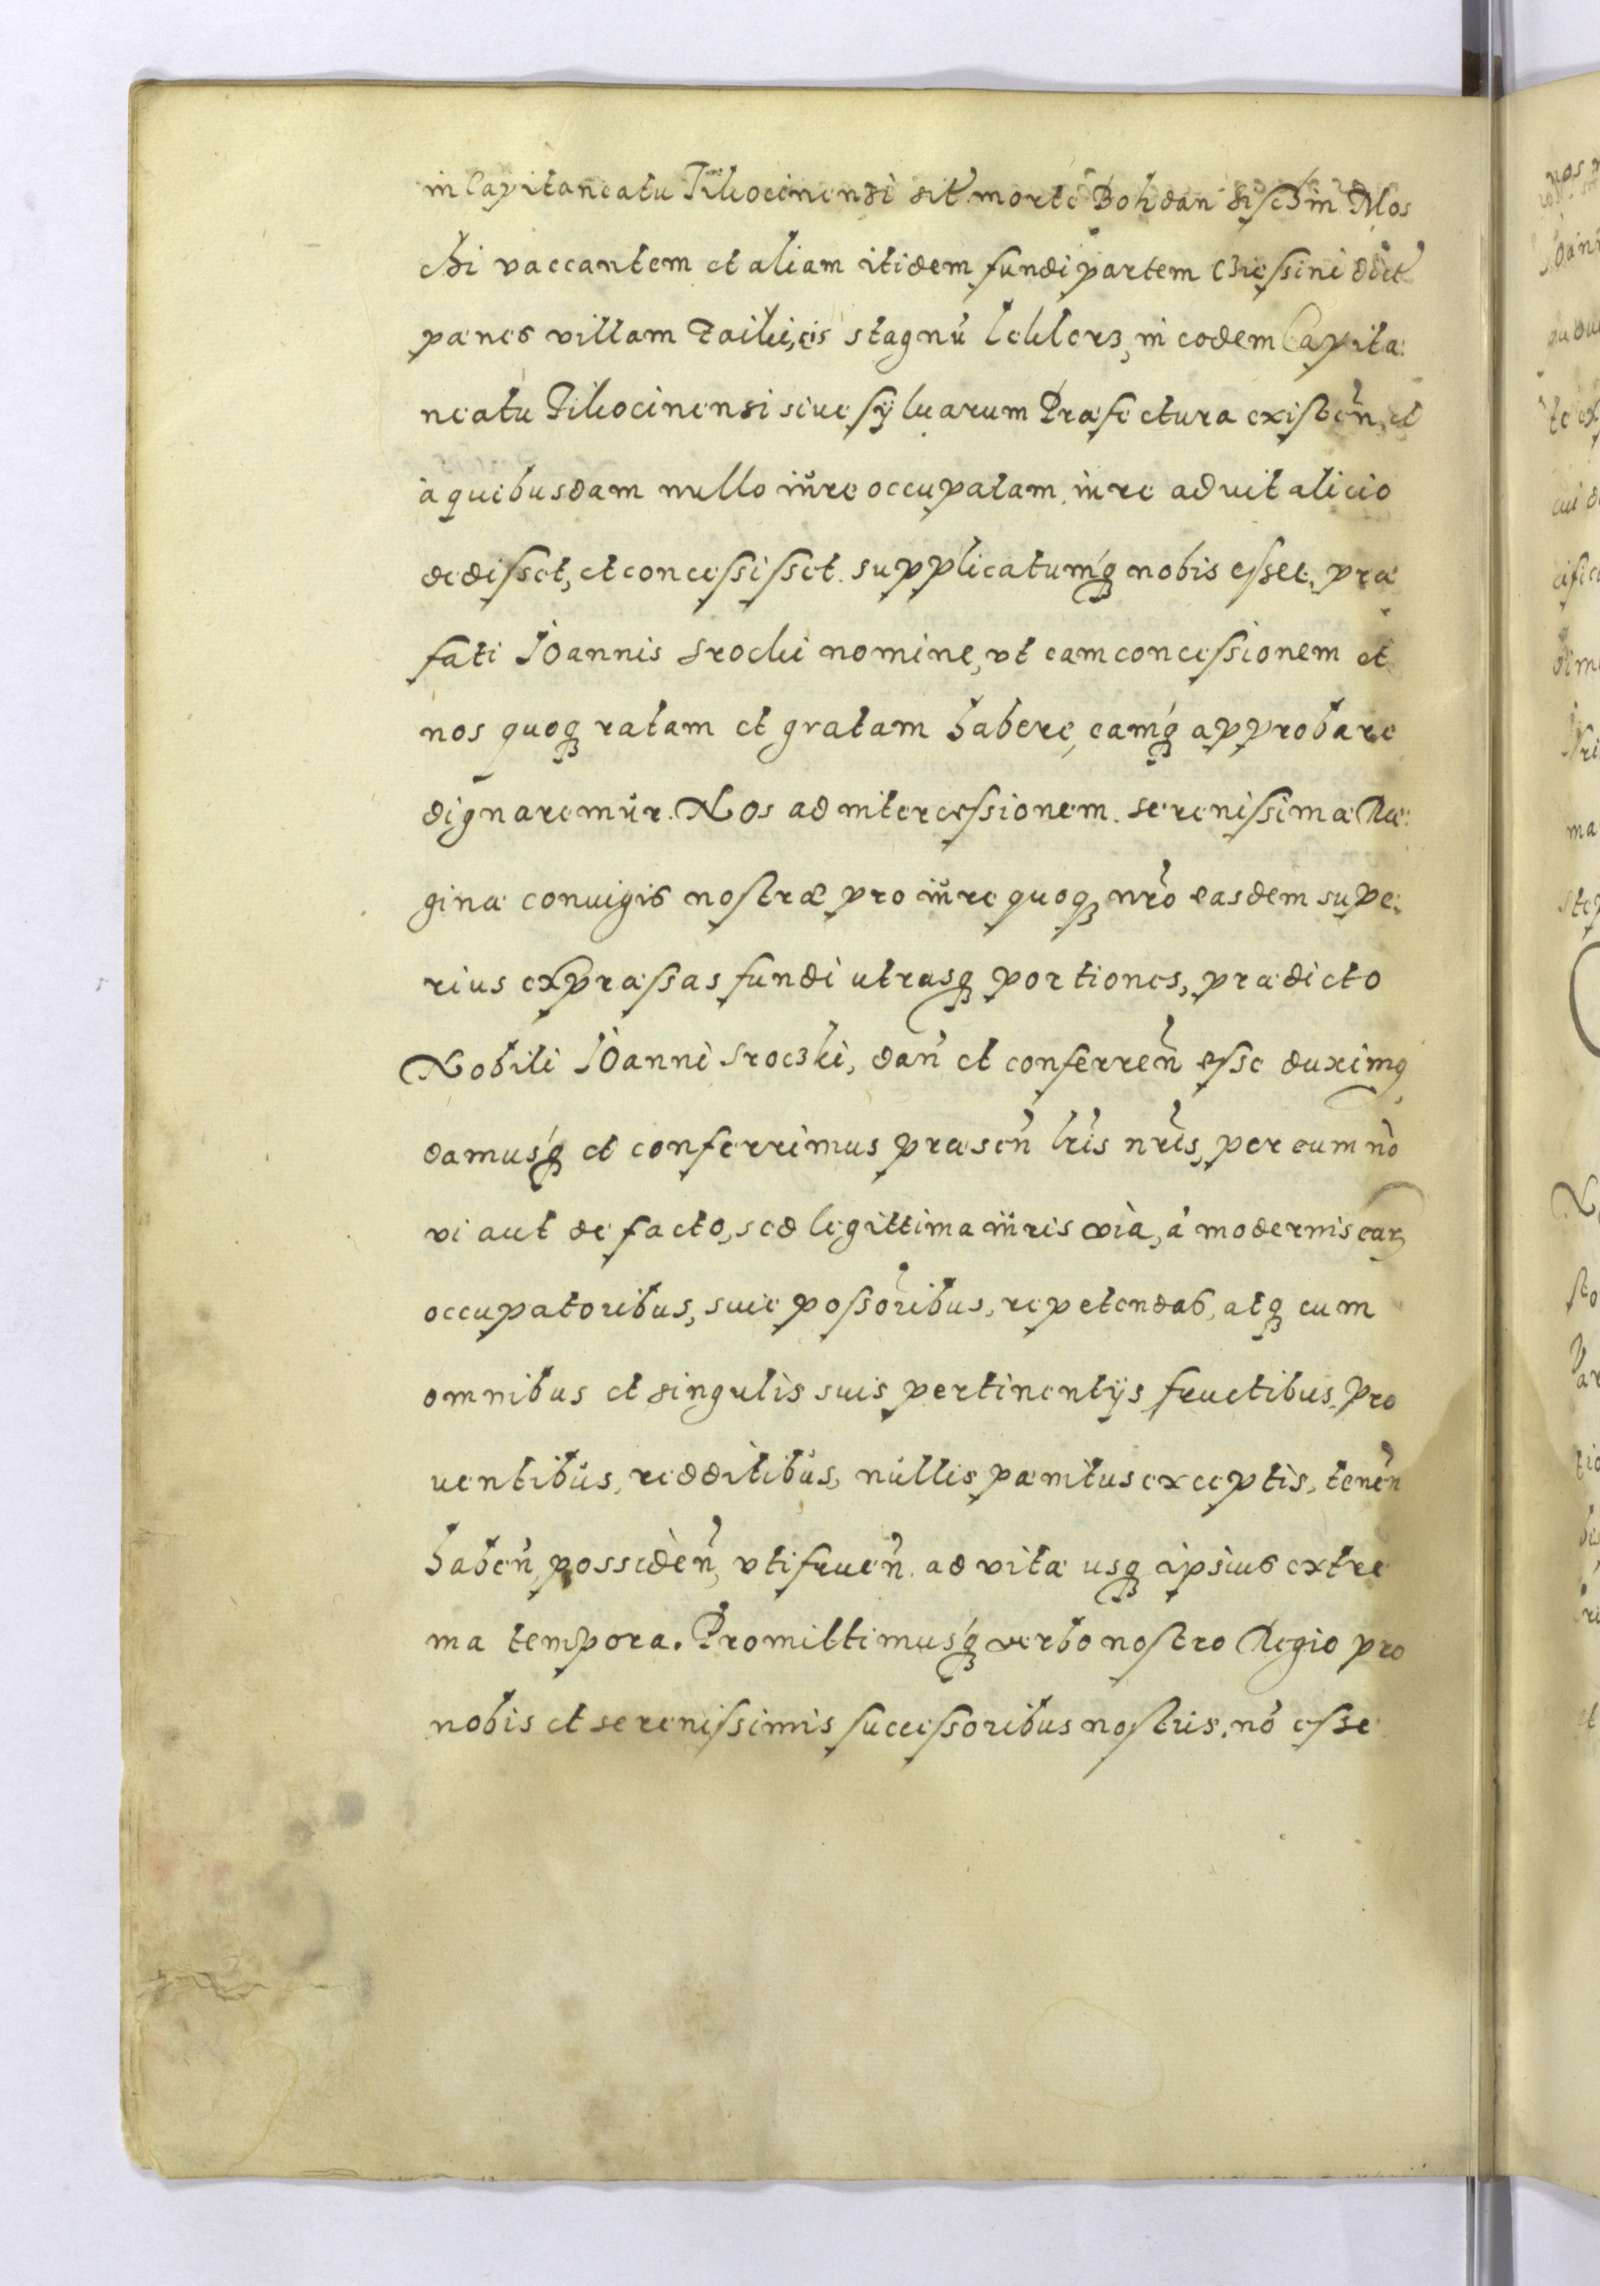 in Capitaneatu Tikocinensi sit. morte Bohdan Mos
chi vaccantem et aliam itidem fundi partem dict
panes villam stagnu in eodem Capita:
neatu Tikocinensi siue syluarum Præfectura existen, et
a quibusdam nullo iure occupatam, iure aduitalicio
dedisset, et concessisset. supplicatumq nobis esset, præ
fati Ioannis Srocki nomine, vt eam concessionem et
nos quoq ratam et gratam habere, eamq approbare
dignaremur. Nos ad intercessionem serenissimæ Re:
ginæ coniugis nostræ pro iure quoq nro easdem supe:
rius expressas fundi utrasq portiones, prædicto
Nobili Ioanni Srocski, dan et conferren esse duximq
damusq et conferrimus præsen lris nris, per eum no
vi aut de facto, sed legittima iuris via, a modernis ear
occupatoribus, siue possoribus, repetendas, atq cum
omnibus et singulis suis pertinentijs fructibus, pro
uentibus, redditibus, nullis pænitus exceptis, tenen
haben, possiden, vtifruen. ad vitæ usq ipsius extre
ma tempora. Promittimusq verbo nostro Regio pro
nobis et serenissimis successoribus nostris, no esse